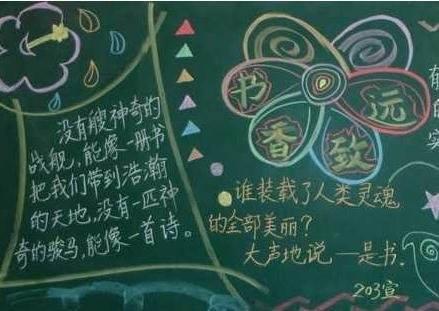 没有艘神奇的
战舰，能像一册书
把我们带到浩瀚
的天地，没有一匹神
奇的骏马，能像一首诗。
书香致远
谁装载了人类灵魂
的全部美丽？
大声地说一是书.
203宣